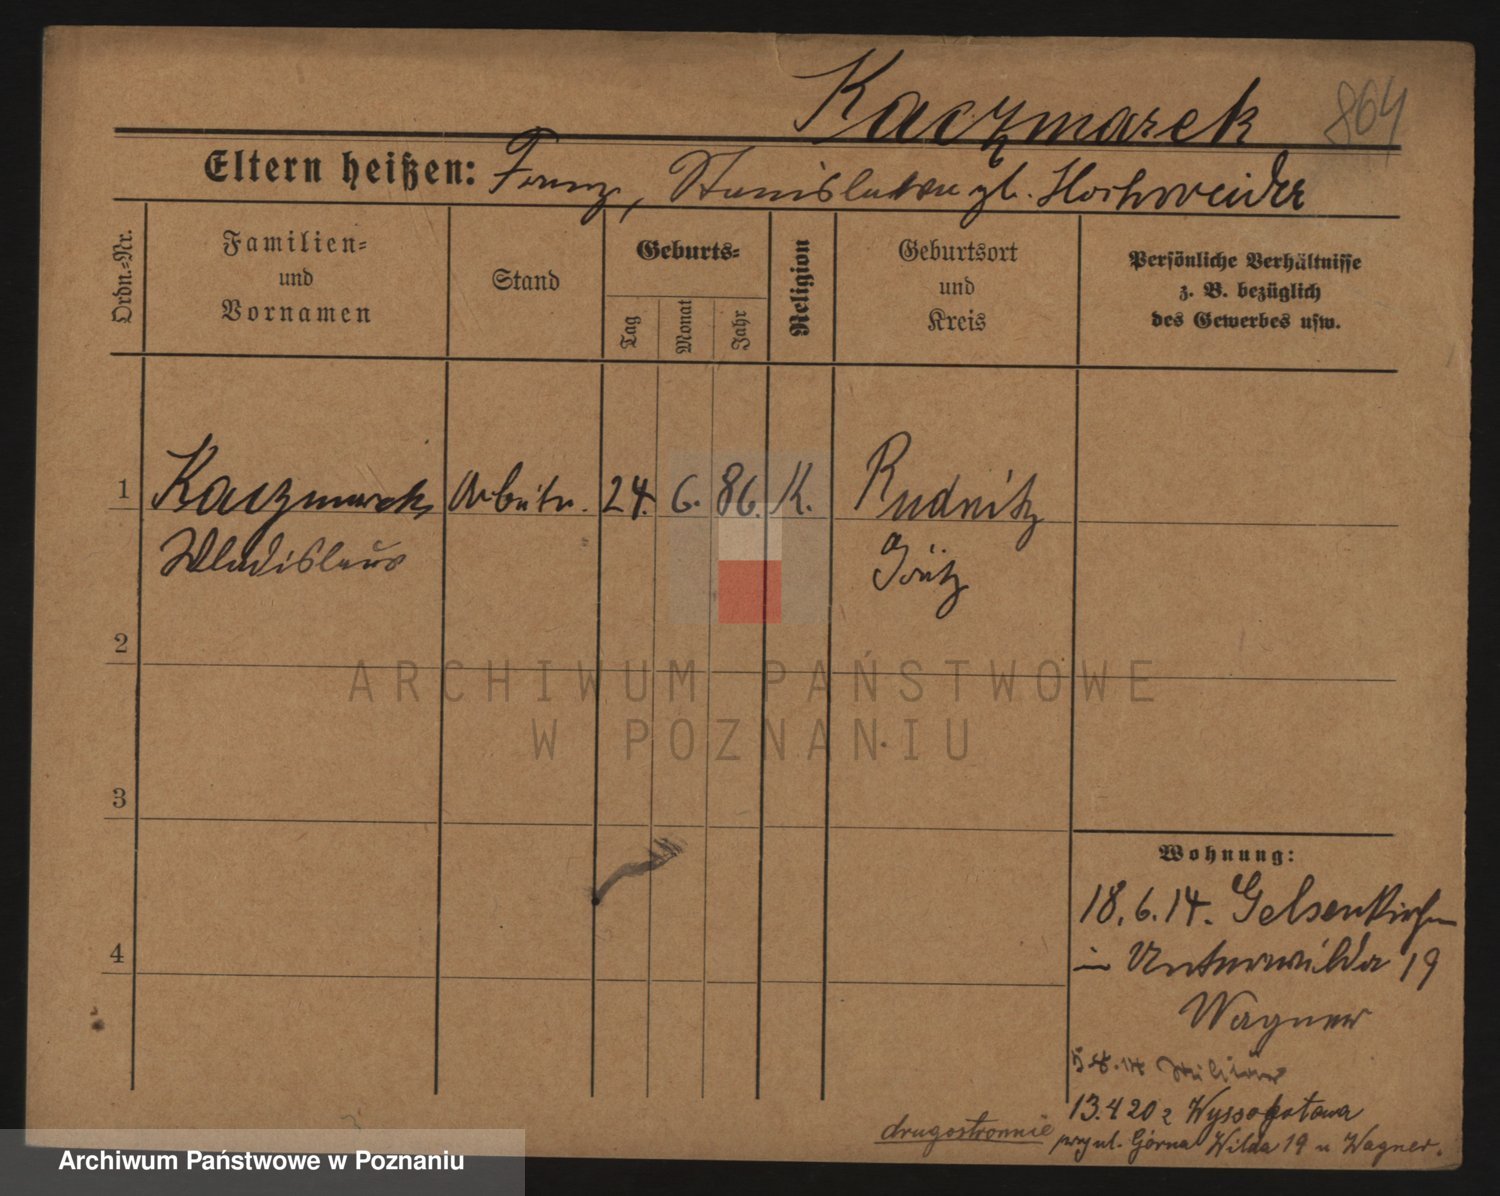 Kaczmarek 864
Eltern heißen: Franz, Stanislawa gb. Hochweider
Ordn.=Nr.
Familien=
und
Vornamen
Stand
Geburts=
Tag
Monat
Jahr
Religion
Geburtsort
und
Kreis
Persönliche Verhältnisse
z. B. bezüglich
des Gewerbes usw.
1 Kaczmarek Arbeiter. 24. 6. 86. K. Rudnitz
Wladislaus
2
3
4
Wohnung:
18.6.14. Gelsenkirchen
in Unterwilda 19
Wagner
Militär
13.4 20 z Wyssogotowa
przy ul. Górna Wilda 19 u Wagner.
drugostronnie
ARCHIWUM PAŃSTWOWE
W POZNANIU
Archiwum Państwowe w Poznaniu